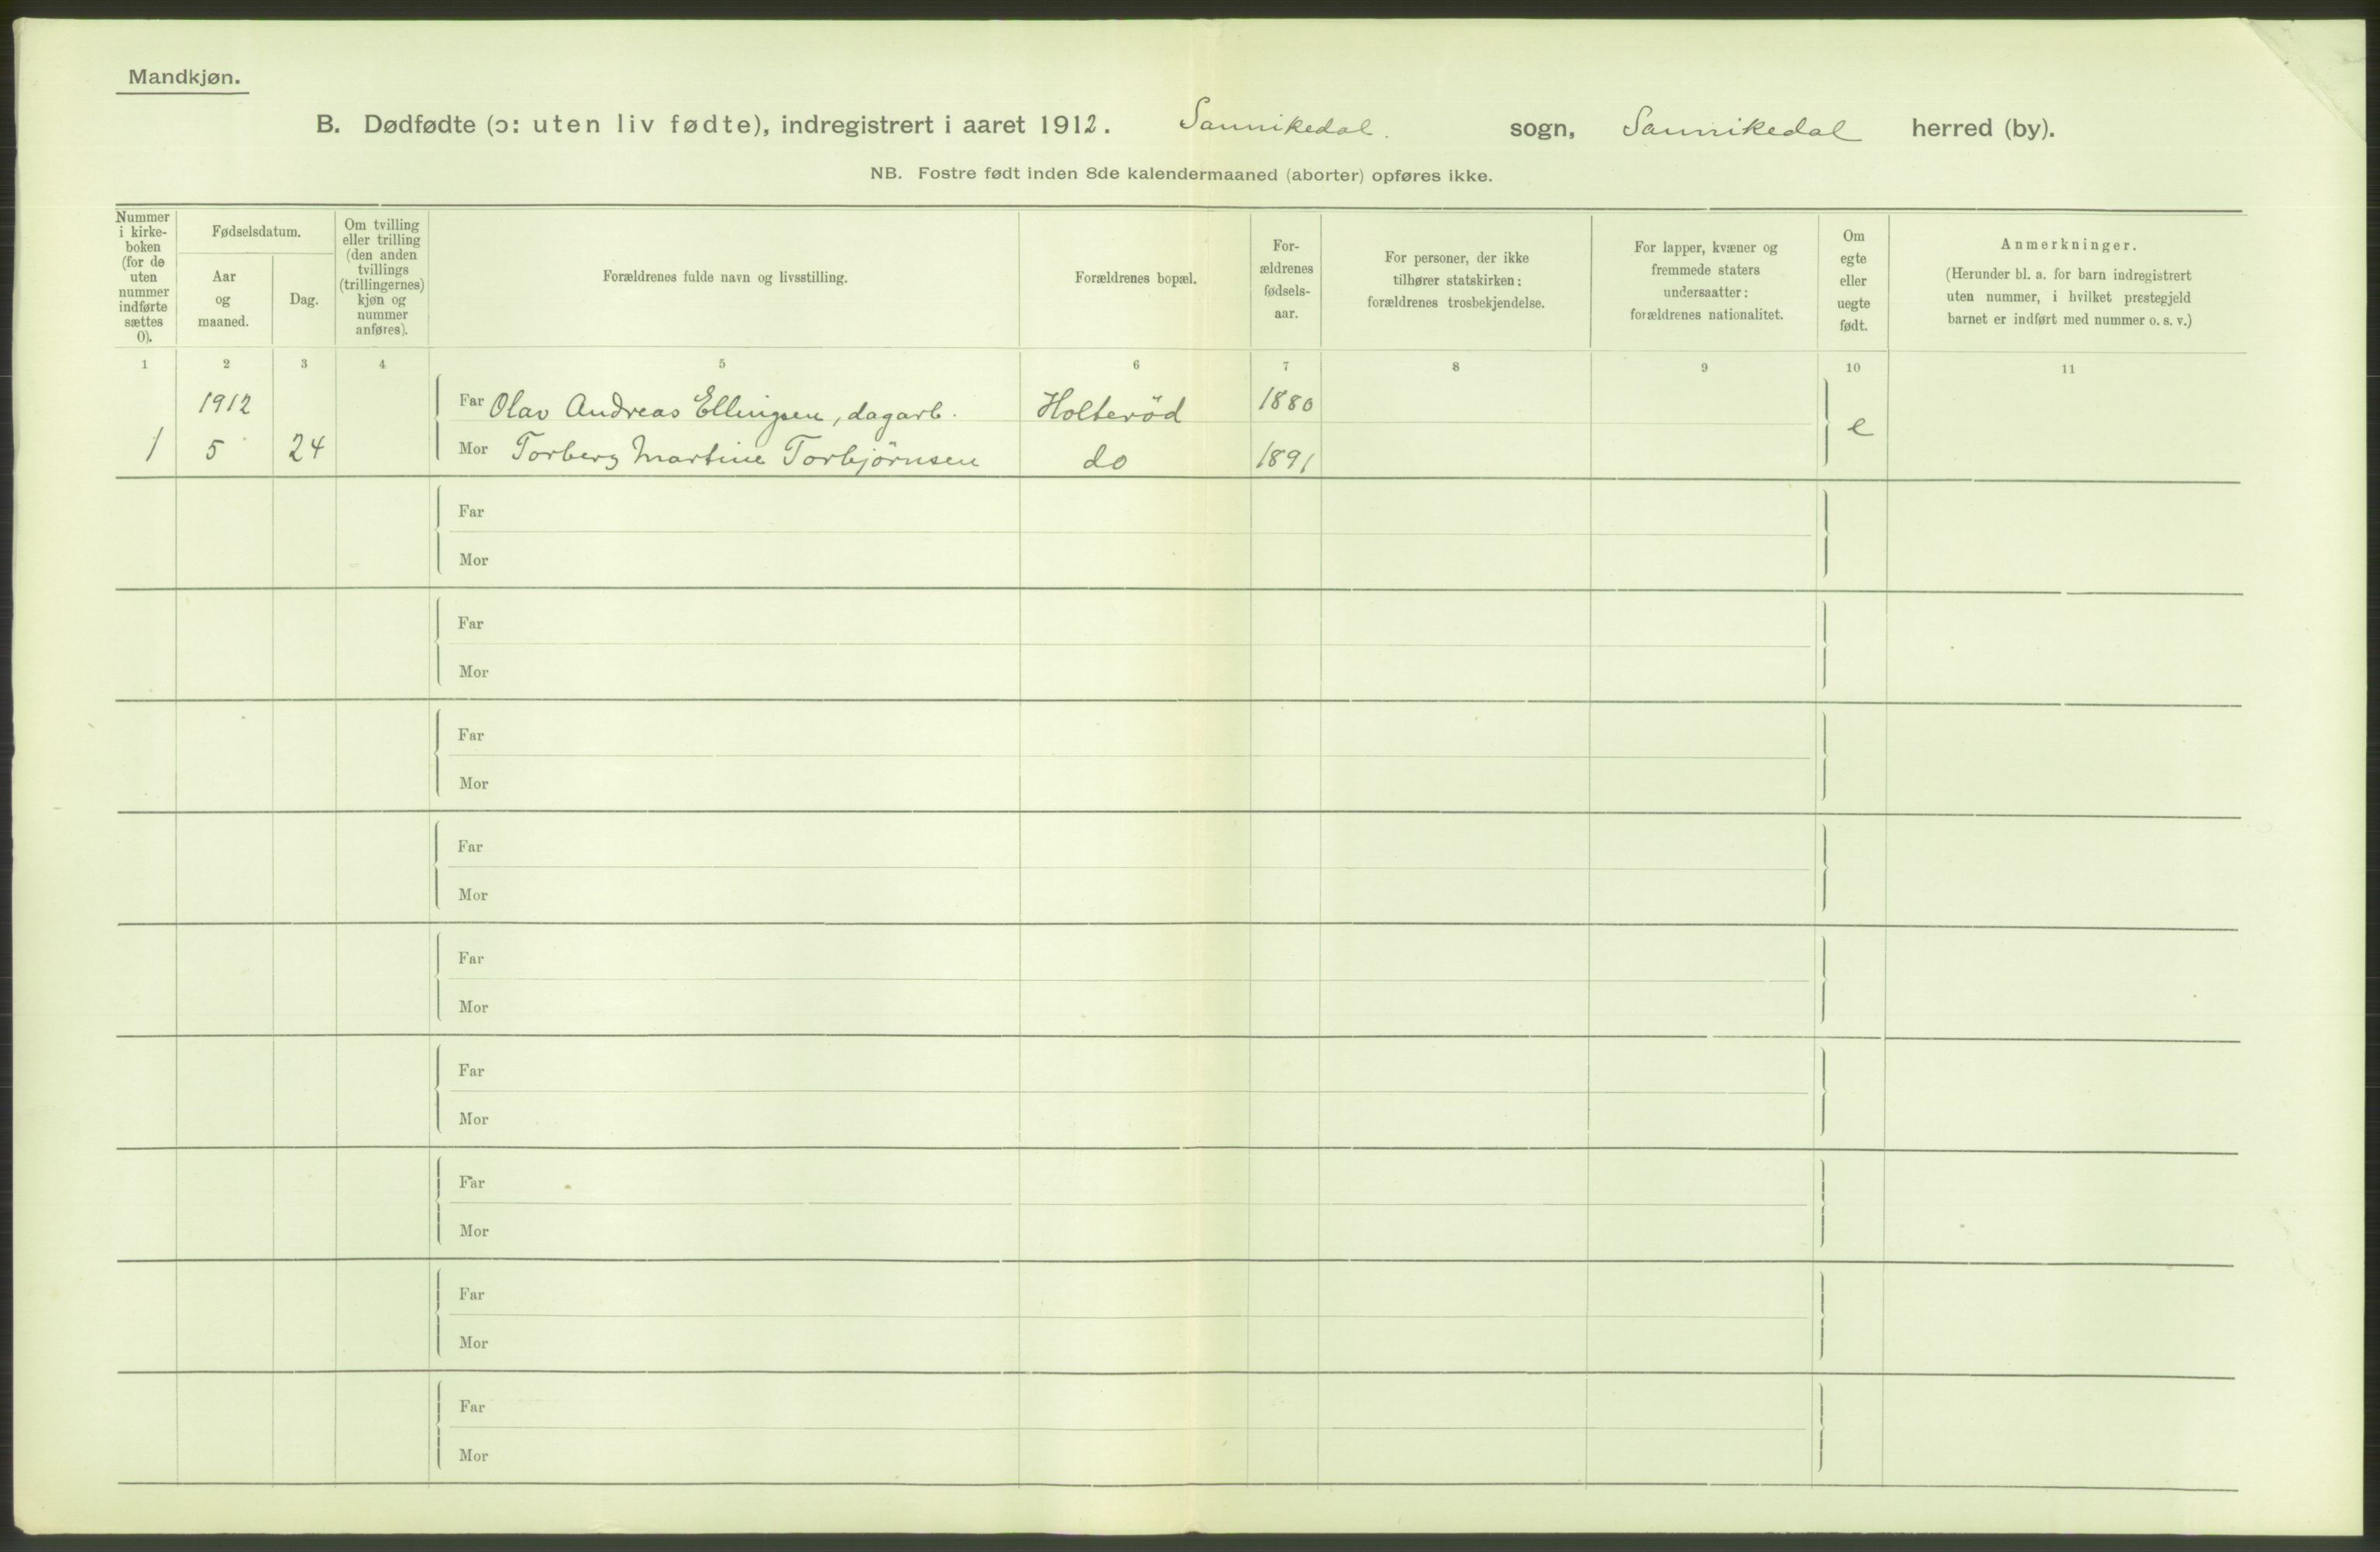 Mandkjøn.
B. Dødfødte (ɔ: uten liv fødte), indregistrert i aaret 1912. Sannikedal. sogn, Sannikedal herred (by).
NB. Fostre født inden 8de kalendermaaned (aborter) opføres ikke.
Nummer
i kirke-
boken
(for de
uten
nummer
indførte
sættes
0).
Fødselsdatum.
Aar
og
maaned.
Dag.
Om tvilling
eller trilling
(den anden
tvillings
(trillingernes)
kjøn og
nummer
anføres).
Forældrenes fulde navn og livsstilling.
Forældrenes bopæl.
For-
ældrenes
fødsels-
aar.
For personer, der ikke
tilhører statskirken:
forældrenes trosbekjendelse.
For lapper, kvæner og
fremmede staters
undersaatter:
forældrenes nationalitet.
Om
egte
eller
uegte
født.
Anmerkninger.
(Herunder bl. a. for barn indregistrert
uten nummer, i hvilket prestegjeld
barnet er indført med nummer o. s. v.)
1 2 3 4 5 6 7 8 9 10 11
1912 Far Olav Andreas Ellingsen, dagarb. Holterød 1880
1 5 24 Mor Torberg Martine Torbjørnsen do 1891 e
Far
Mor
Far
Mor
Far
Mor
Far
Mor
Far
Mor
Far
Mor
Far
Mor
Far
Mor
Far
Mor